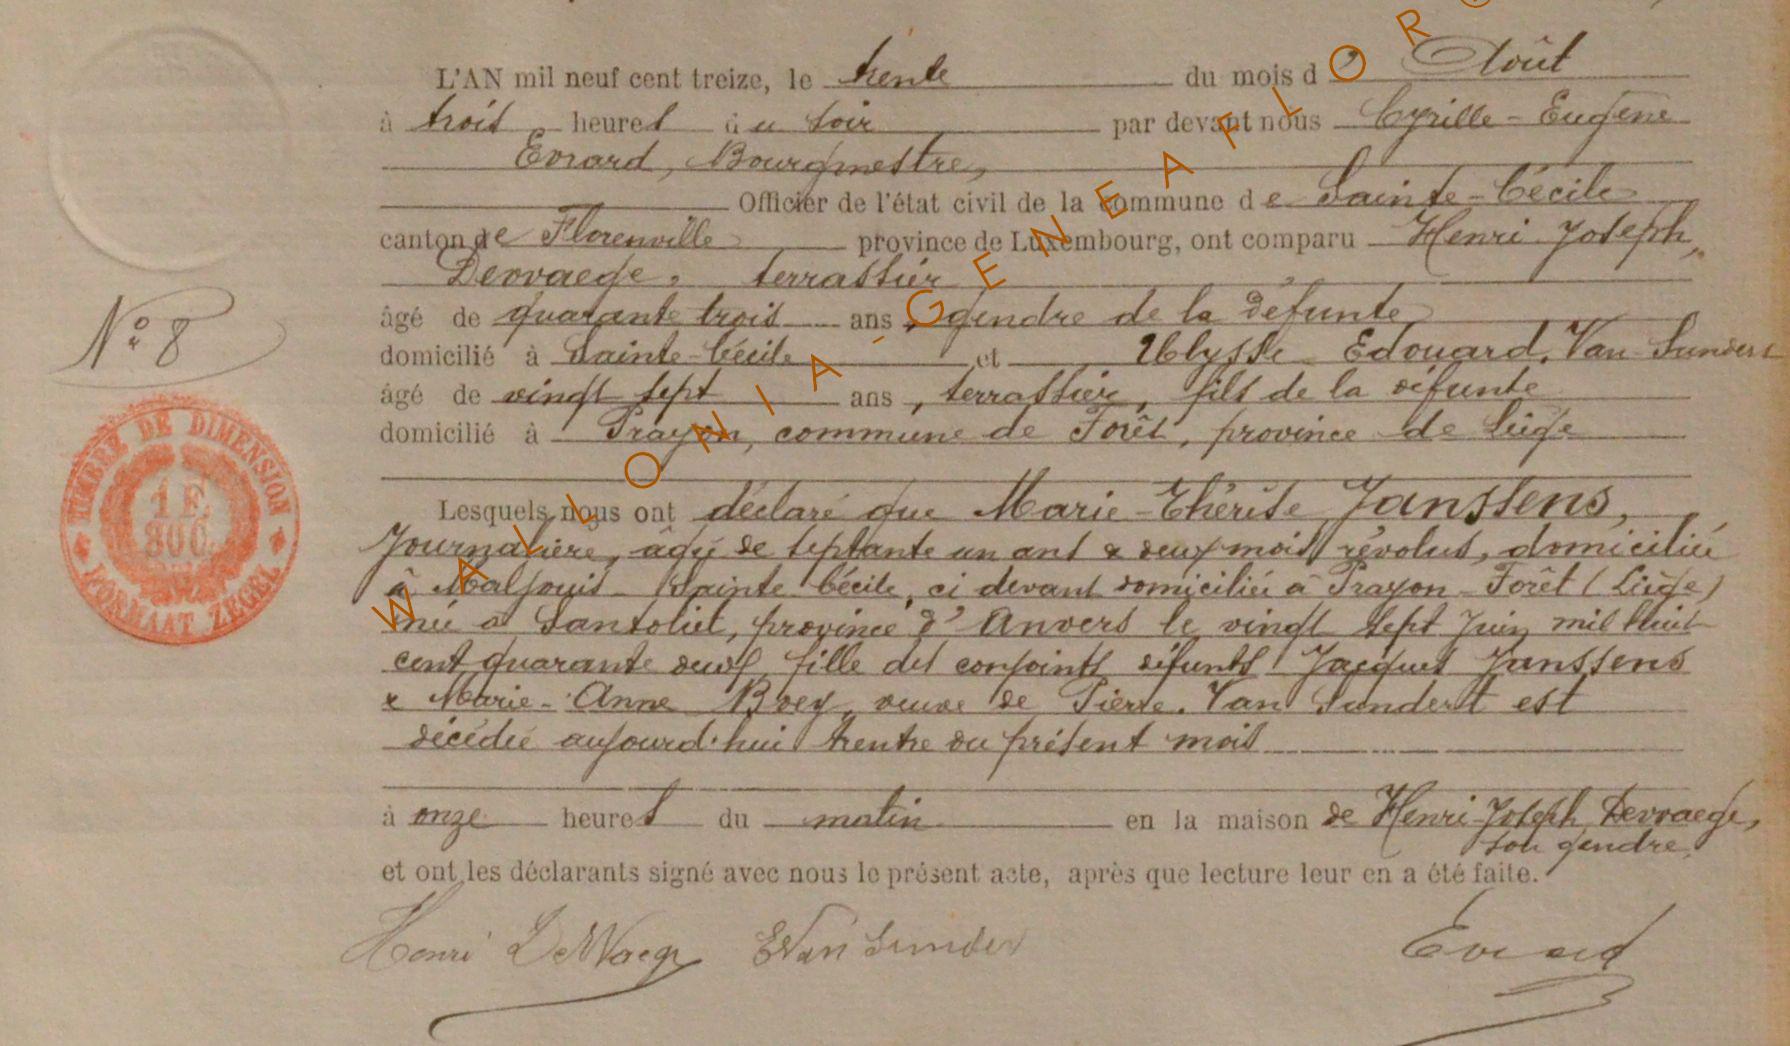 L'AN mil neuf cent treize, le trente du mois d'Août
à trois heures du soir par devant nous Cyrille-Eugène
Evrard, Bourgmestre,
Officier de l'état civil de la commune de Sainte-Cécile
canton de Florenville province de Luxembourg, ont comparu Henri-Joseph,
Devvaege, terrassier
âgé de quarante trois ans, gendre de la défunte
N° 8
domicilié à Sainte-Cécile et Ulysse Edouard, Van Sundert
âgé de vingt sept ans, terrassier, fils de la défunte
domicilié à Prayon, commune de Forêt, province de Liége
TIMBRE DE DIMENSION
1 F. 80 C.
FORMAAT ZEGEL
Lesquels nous ont déclaré que Marie-Thérèse Janssens,
Journalière, âgée de septante un ans & deux mois révolus, domiciliée
à Sainte Cécile, ci devant domiciliée à Prayon-Forêt (Liège)
née à Santvliet, province d'Anvers le vingt sept Juin mil huit
cent quarante deux, fille des conjoints défunts Jacques Janssens
& Marie-Anne Boey, veuve de Pierre Van Sundert est
décédée aujourd'hui trente du présent mois
à onze heures du matin en la maison de Henri-Joseph Devvaege,
son gendre,
et ont les déclarants signé avec nous le présent acte, après que lecture leur en a été faite.
Henri DeWaege EVan Sundert Evrard
WALLONIA-GENEAFLOR